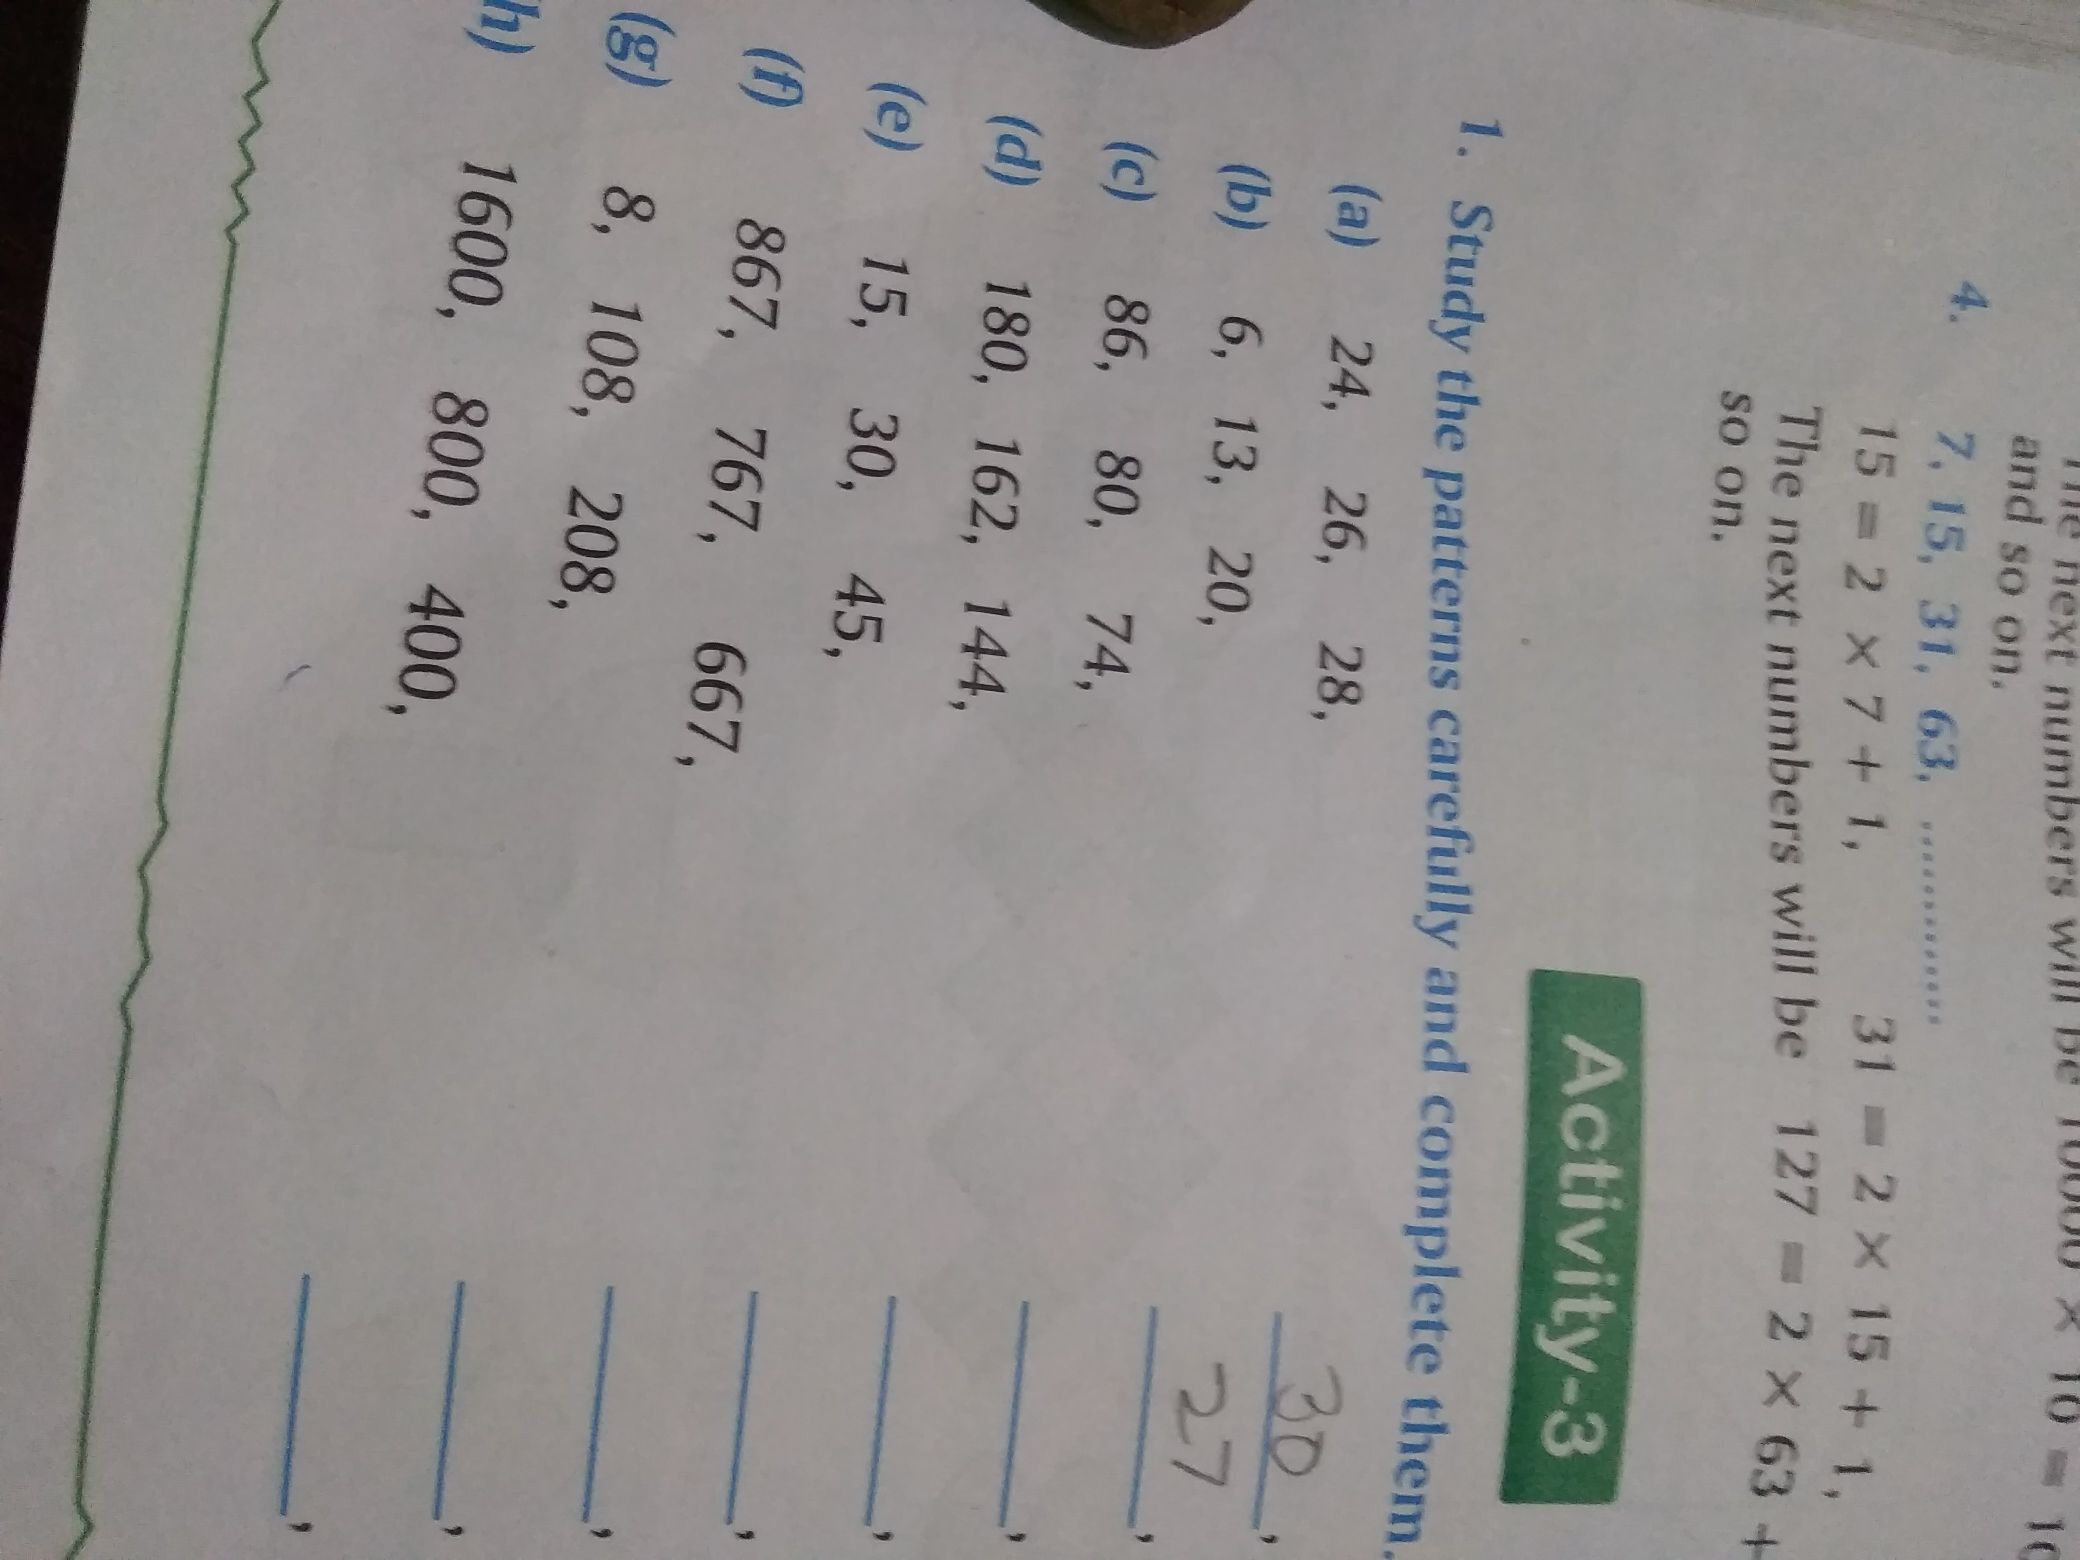 The next numbers will be 10000 × 10 =
and so on.
4. 7, 15, 31, 63, ............
15 = 2 × 7 + 1, 31 = 2 × 15 + 1,
The next numbers will be 127 = 2 × 63 +
so on.
Activity-3
1. Study the patterns carefully and complete them.
(a) 24, 26, 28, 30,
(b) 6, 13, 20, 27,
(c) 86, 80, 74, ,
(d) 180, 162, 144, ,
(e) 15, 30, 45, ,
(f) 867, 767, 667, ,
(g) 8, 108, 208, ,
h) 1600, 800, 400, ,